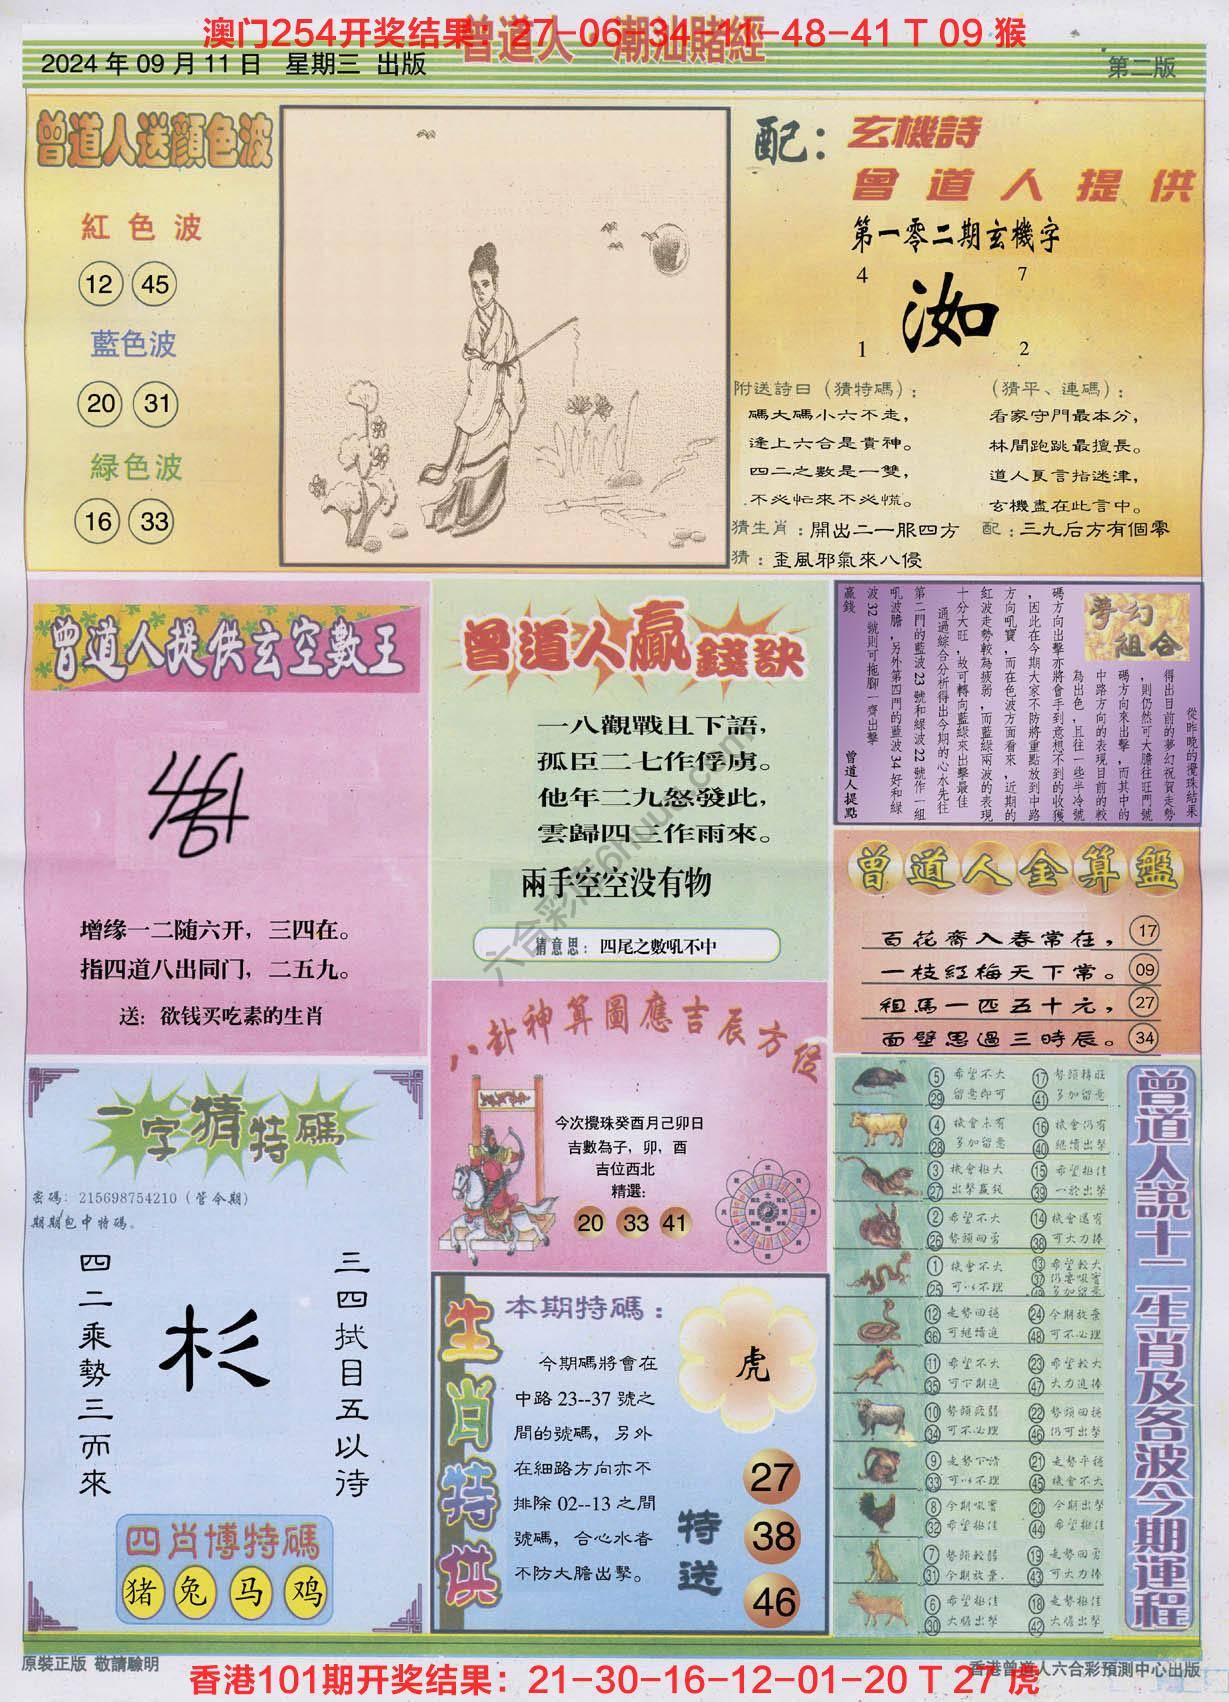 澳门254开奖结果：27-06-34-11-48-41 T 09 猴
曾道人 潮汕賭經
2024 年 09 月 11 日 星期三 出版
第二版
曾道人送顔色波
紅色波
12 45
藍色波
20 31
緑色波
16 33
配：玄機詩
曾道人提供
第一零二期玄機字
4 7
洳
1 2
附送詩曰（猜特碼）：
碼大碼小六不走，
逢上六合是貴神。
四二之數是一雙，
不必忙來不必慌。
（猜平、連碼）：
看家守門最本分，
林間跑跳最擅長。
道人良言指迷津，
玄機盡在此言中。
猜生肖：開出二一服四方
配：三九后方有個零
猜：歪風邪氣來八侵
曾道人提供玄空數王
增缘一二随六开，三四在。
指四道八出同门，二五九。
送：欲钱买吃素的生肖
曾道人贏錢訣
一八觀戰且下語，
孤臣二七作俘虜。
他年二九怒發此，
雲歸四三作雨來。
兩手空空没有物
猜意思：四尾之數吼不中
夢幻組合
從昨晚的攪珠結果
得出目前的夢幻祝賀走勢
，則仍然可大膽往旺門號
碼方向來出擊，而其中的
中路方向的表現目前的較
為出色，且往一些半冷號
碼方向出擊亦將會手到意想不到的收獲
，因此在今期大家不防將重點放到中路
方向吼寶，而在色波方面看來，近期的
紅波走勢較為疲弱，而藍綠兩波的表現
十分大旺，故可轉向藍綠來出擊最佳
通過綜合分析得出今期的心水先往
第二門的藍波 23 號和綠波 22 號作一組
吼波膽，另外第四門的藍波 34 好和綠
波 32 號則可拖腳一齊出擊
贏錢
曾道人提點
曾道人金算盤
百花齊入春常在， 17
一枝紅梅天下常。 09
祖馬一匹五十元， 27
面壁思過三時辰。 34
八卦神算圖應吉辰方位
今次攪珠癸酉月己卯日
吉數為子，卯，酉
吉位西北
精選：
20 33 41
一字猜特碼
密碼：215698754210（管令期）
期期包中特碼。
四二乘勢三而來
杉
三四拭目五以待
四肖博特碼
猪 兔 马 鸡
生肖特供
本期特碼：
今期碼將會在
中路 23--37 號之
間的號碼，另外
在細路方向亦不
排除 02--13 之間
號碼，合心水者
不防大膽出擊。
虎
特送
27
38
46
曾道人説十二生肖及各波今期運程
5 希望不大 17 勢頭轉旺
29 留意即可 41 多加留意
4 機會未有 16 機會仍有
28 多加留意 40 繼續出擊
3 機會挺大 15 希望挺佳
27 出擊贏錢 39 一於出擊
2 希望不大 14 機會還有
26 勢頭回勇 38 可大力捧
1 機會不大 13 希望較大
25 可以不理 37
12 走勢回穩 24 今期放棄
36 可繼續追 48 可不必理
11 希望不大 23 希望較大
35 可下期追 47 大力追捧
10 勢頭疲弱 22 勢頭回穩
34 可不必理 46 仍可出擊
9 走勢下清 21 走勢平穩
33 可以不理 45 機會不大
8 今期吼寶 20 今期出擊
32 希望挺佳 44 希望挺佳
7 勢頭較弱 19 走勢回勇
31 今期放棄. 43 可大力捧
6 希望挺佳 18 走勢挺佳
30 大膽出擊 42 大膽出擊
六合彩库6huud.com
原裝正版 敬請驗明
香港曾道人六合彩預測中心出版
香港101期开奖结果：21-30-16-12-01-20 T 27 虎